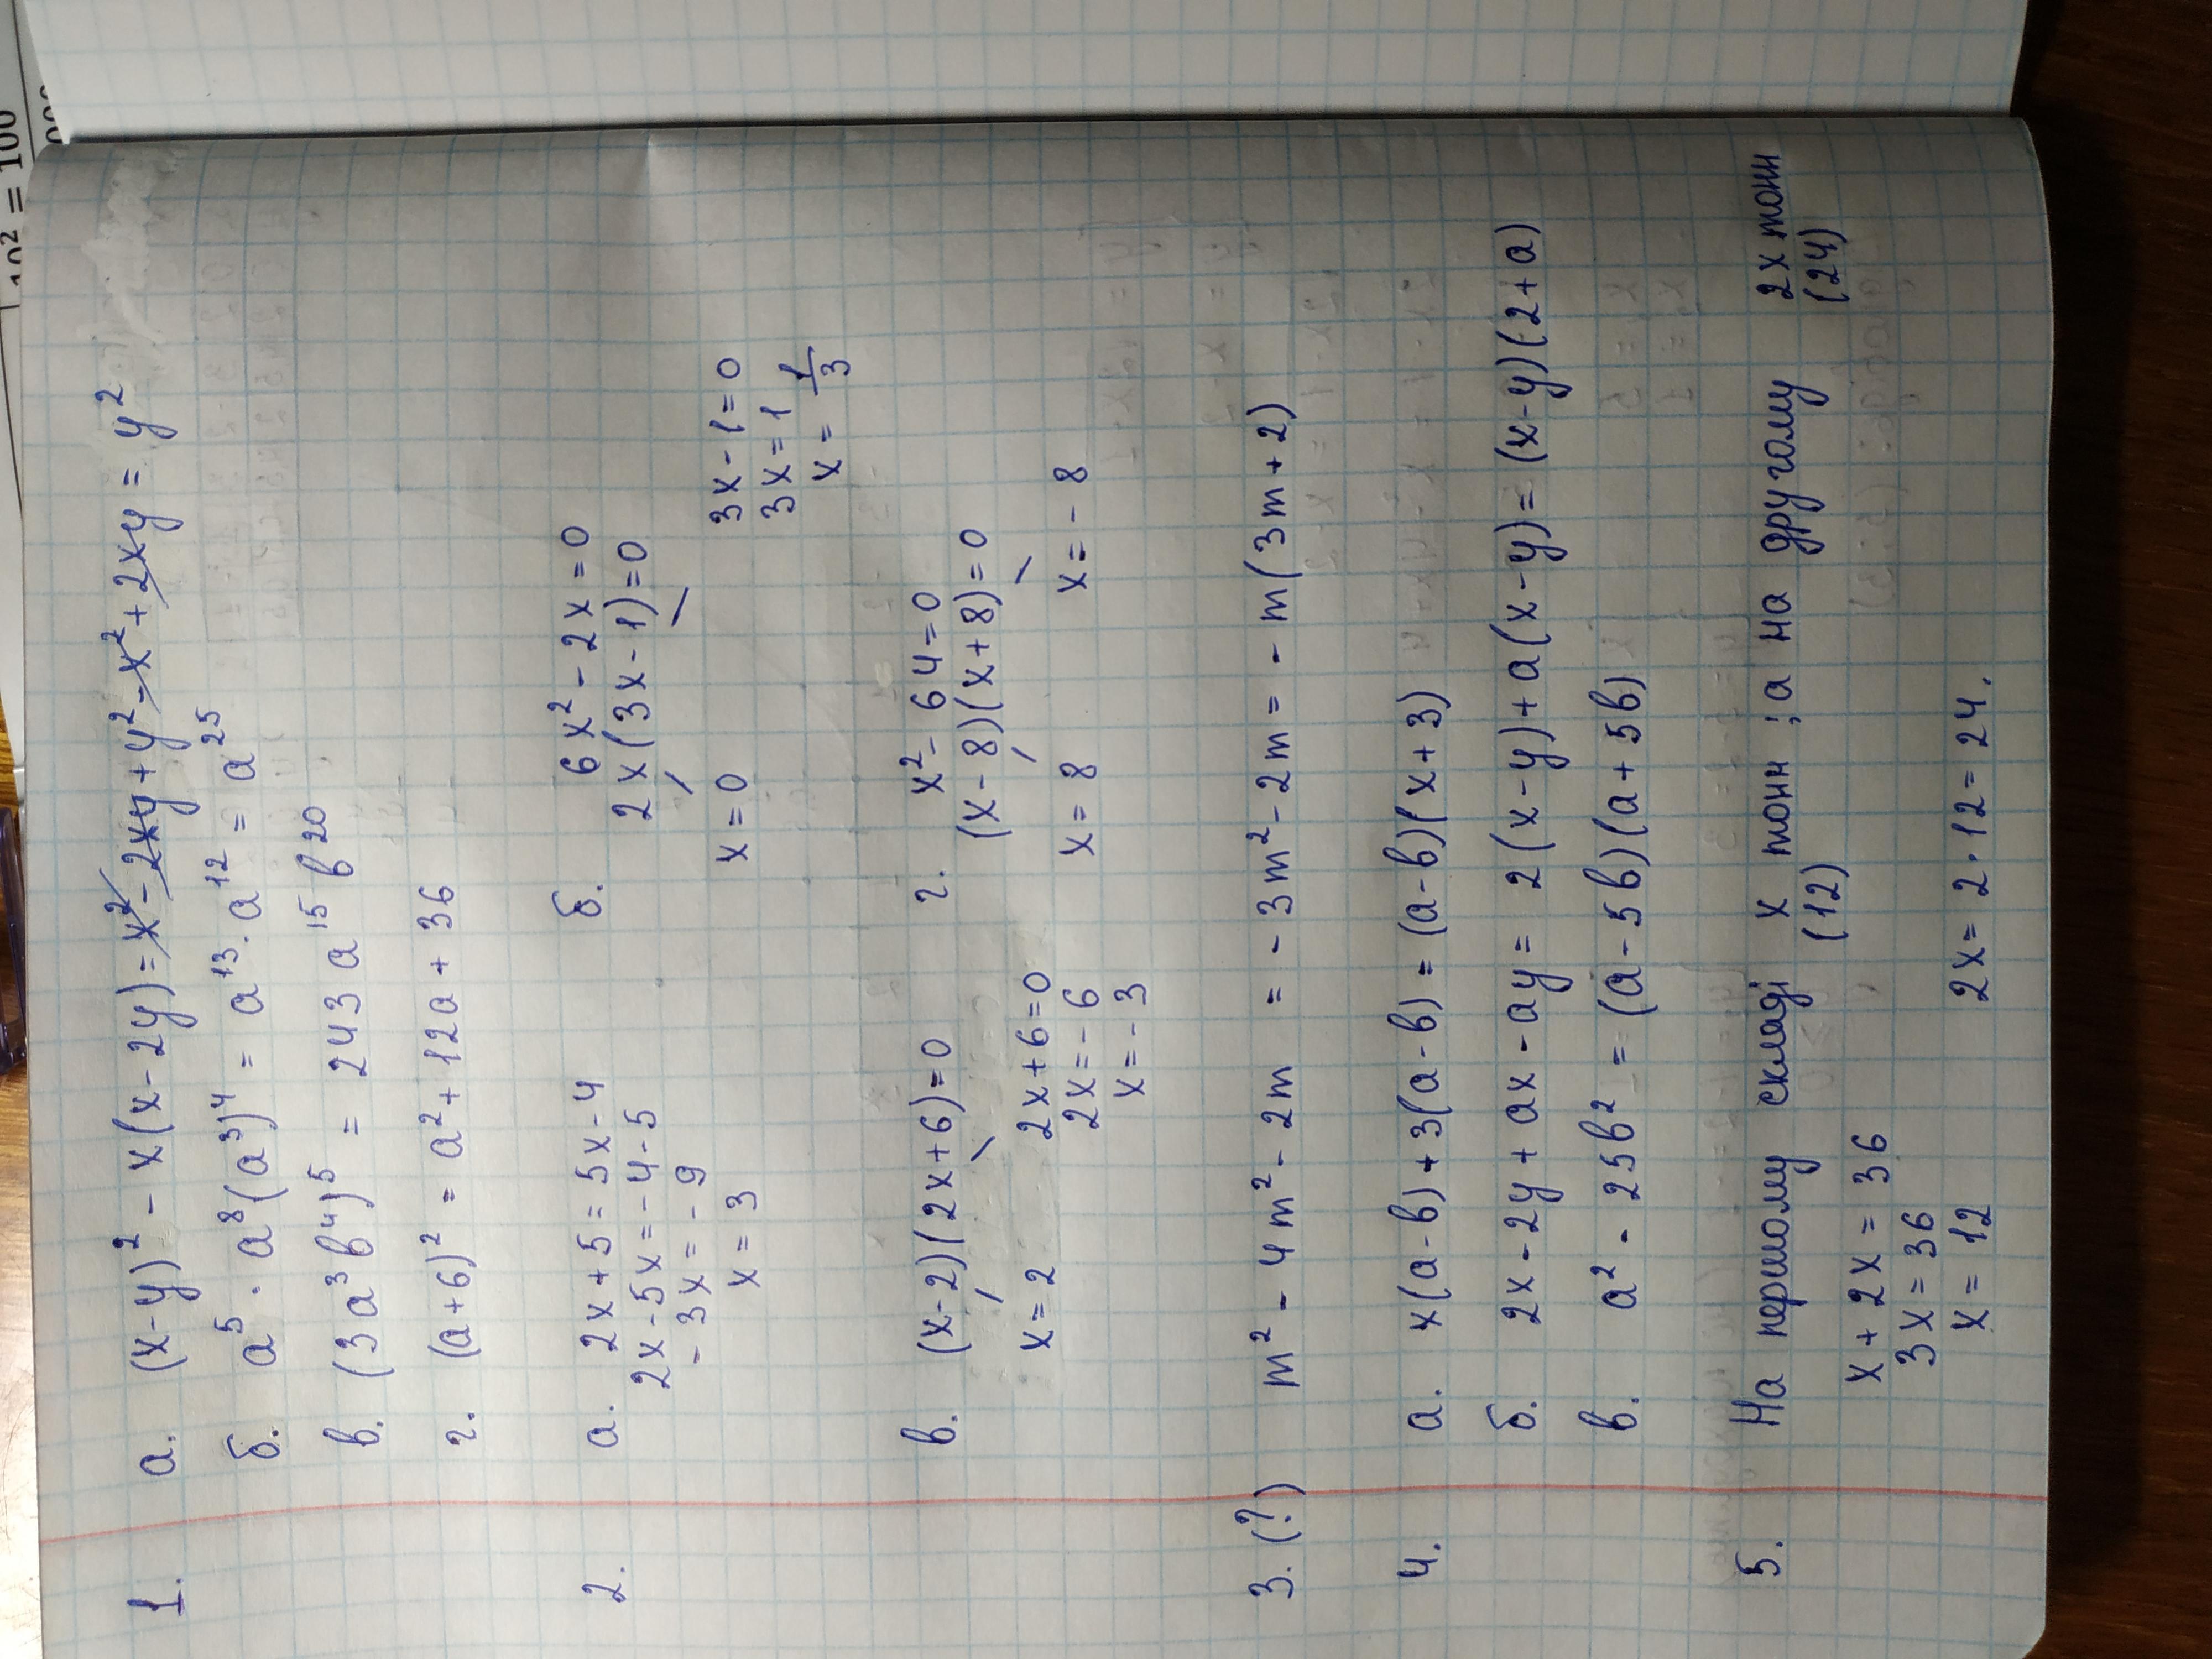 1. а. (x-y)² - x(x-2y) = x² - 2xy + y² - x² + 2xy = y²
б. a⁵ · a⁸(a³)⁴ = a¹³ · a¹² = a²⁵
в. (3a³b⁴)⁵ = 243 a¹⁵ b²⁰
г. (a+6)² = a² + 12a + 36
2. а. 2x + 5 = 5x - 4
2x - 5x = -4 - 5
- 3x = - 9
x = 3
б. 6x² - 2x = 0
2x(3x - 1) = 0
x = 0
3x - 1 = 0
3x = 1
x = 1/3
в. (x-2)(2x+6) = 0
x = 2
2x + 6 = 0
2x = - 6
x = - 3
г. x² - 64 = 0
(x - 8)(x + 8) = 0
x = 8 x = - 8
3. (?) m² - 4m² - 2m = - 3m² - 2m = - m(3m + 2)
4. а. x(a-b) + 3(a-b) = (a-b)(x+3)
б. 2x - 2y + ax - ay = 2(x-y) + a(x-y) = (x-y)(2+a)
в. a² - 25b² = (a - 5b)(a + 5b)
5. На першому складі x тонн ; а на другому 2x тонн
(12) (24)
x + 2x = 36
3x = 36
x = 12
2x = 2 · 12 = 24.
10² = 100